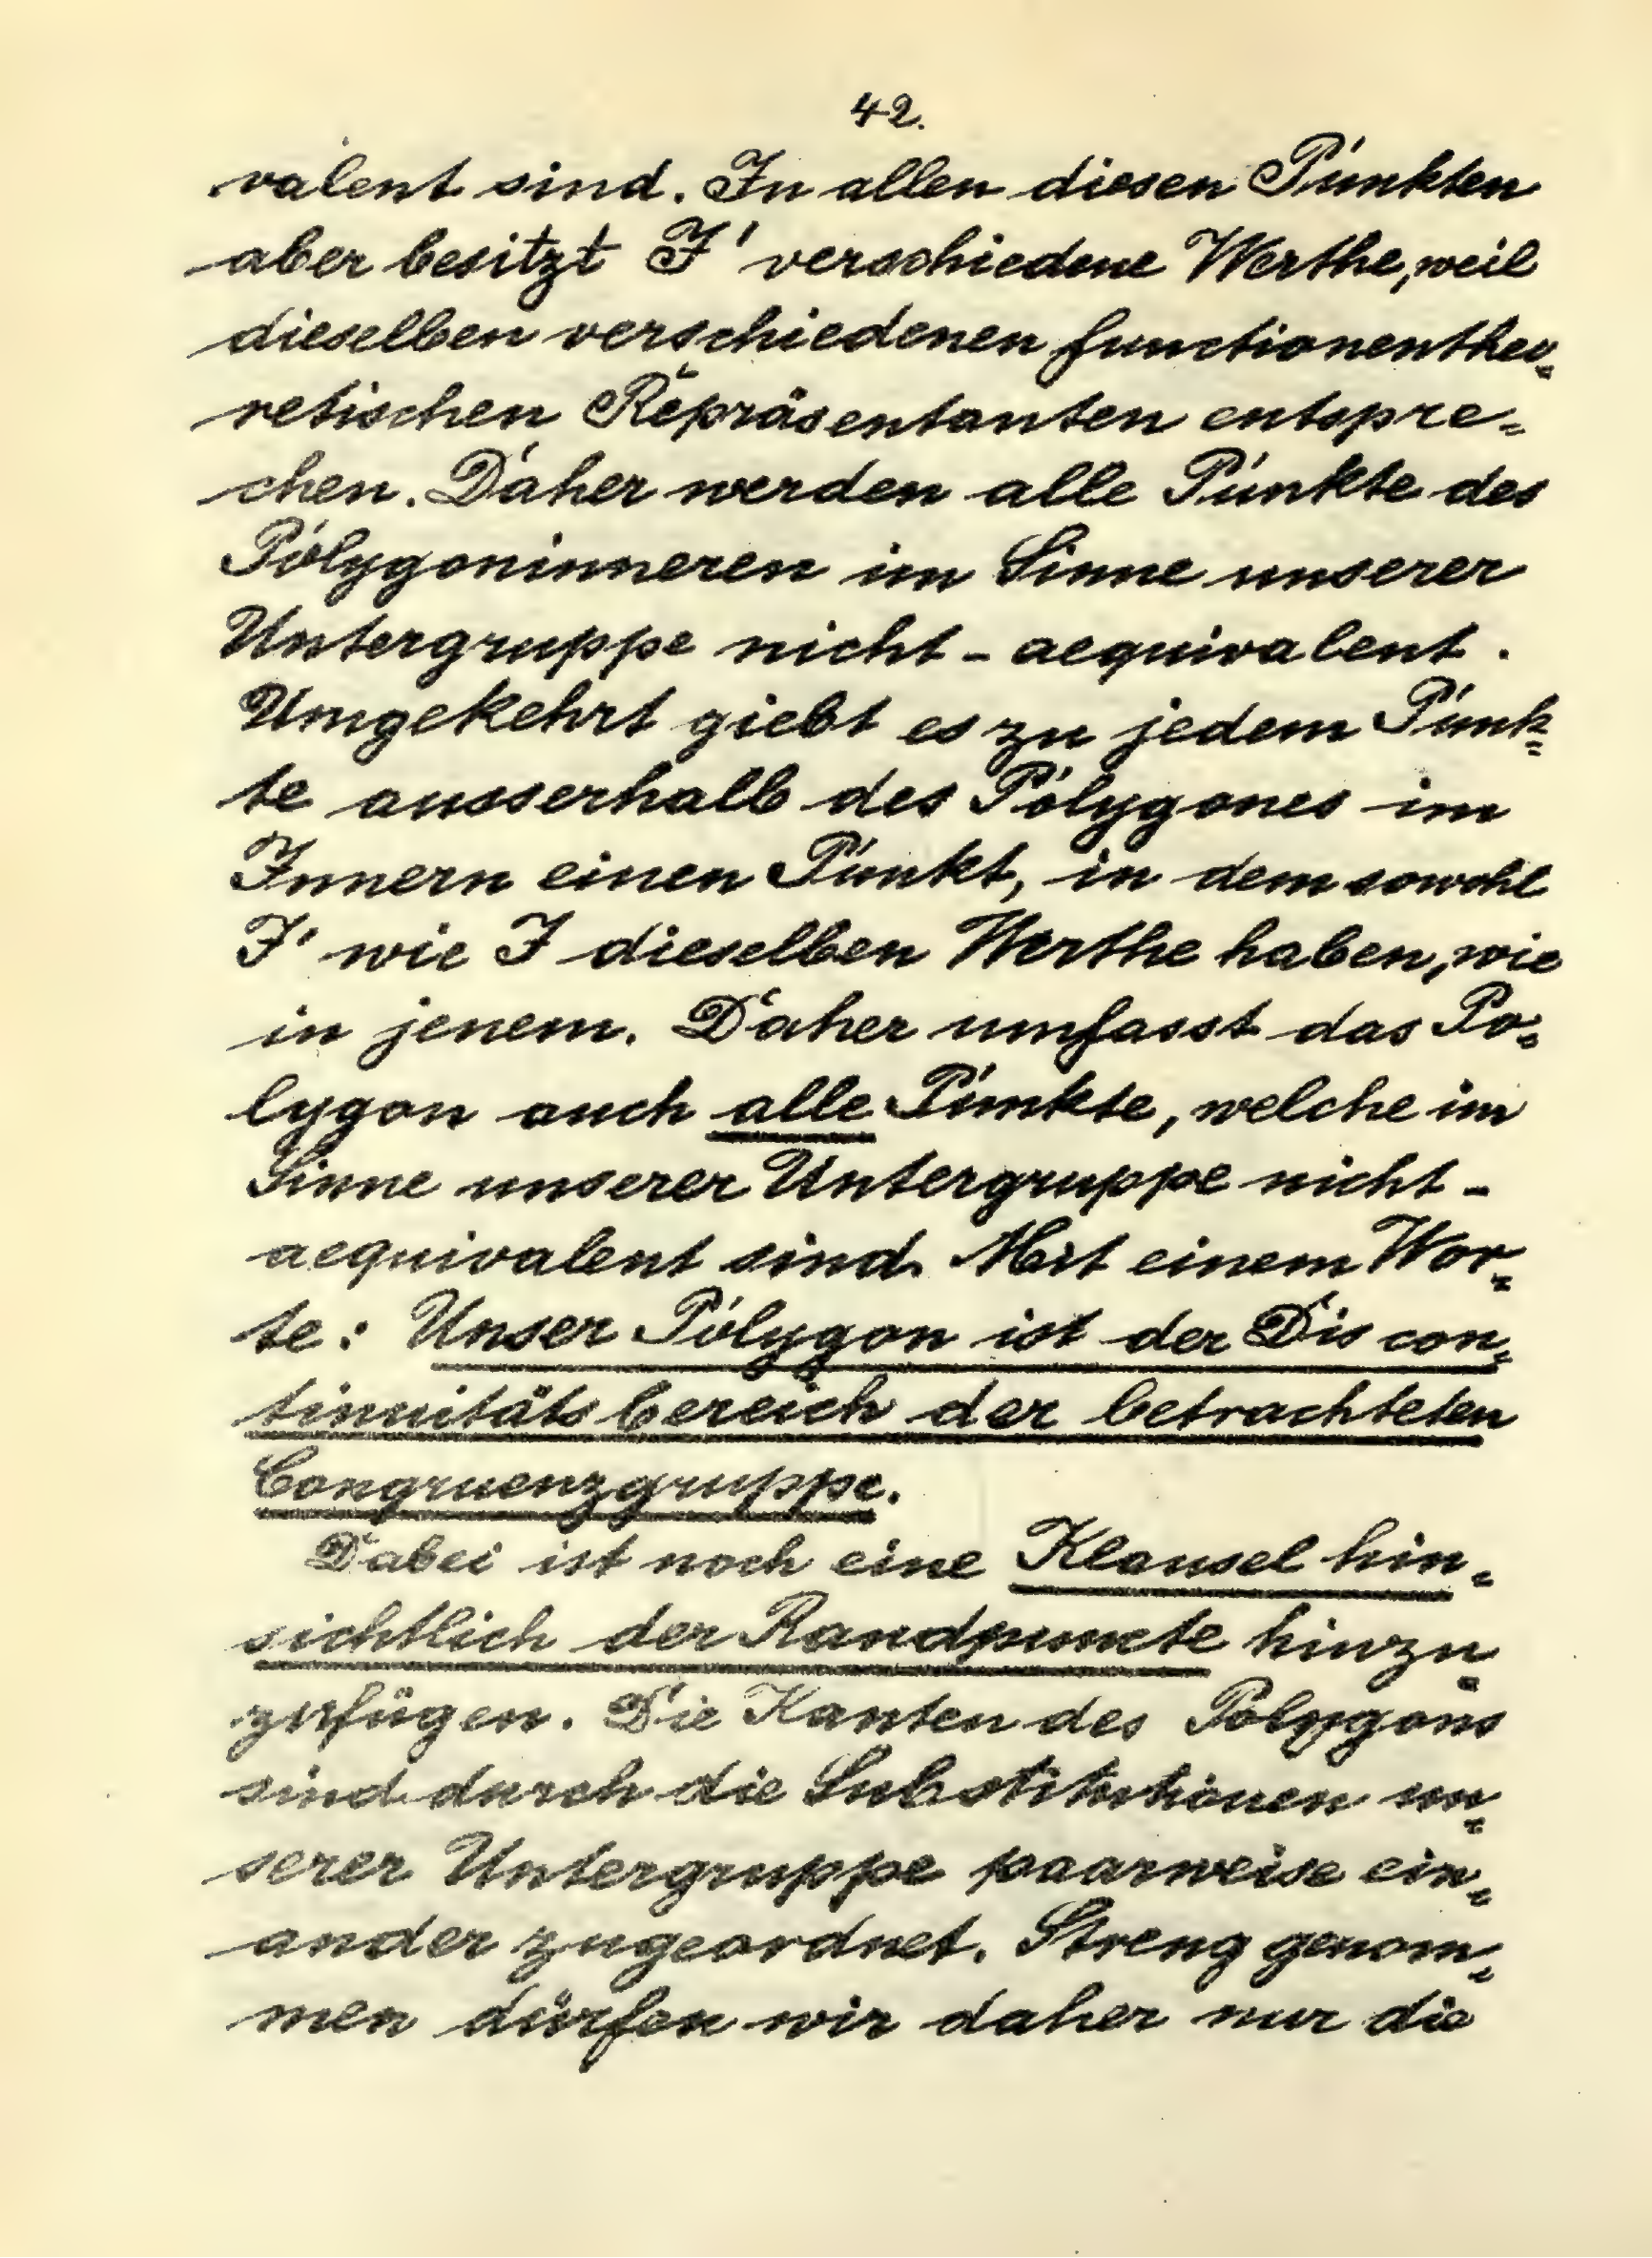 42.
valent sind. In allen diesen Punkten
aber besitzt J' verschiedene Werthe, weil
dieselben verschiedenen functionentheo-
retischen Repräsentanten entspre-
chen. Daher werden alle Punkte des
Polygoninneren im Sinne unserer
Untergruppe nicht-aequivalent.
Umgekehrt giebt es zu jedem Punk-
te ausserhalb des Polygones im
Innern einen Punkt, in dem sowohl
J' wie J dieselben Werthe haben, wie
in jenem. Daher umfasst das Po-
lygon auch alle Punkte, welche im
Sinne unserer Untergruppe nicht-
aequivalent sind. Mit einem Wor-
te: Unser Polygon ist der Discon-
tinuitätsbereich der betrachteten
Congruenzgruppe.
Dabei ist noch eine Klausel hin-
sichtlich der Randpuncte hinzu
zufügen. Die Kanten des Polygons
sind durch die Substitutionen un-
serer Untergruppe paarweise ein-
ander zugeordnet. Streng genom-
men dürfen wir daher nur die